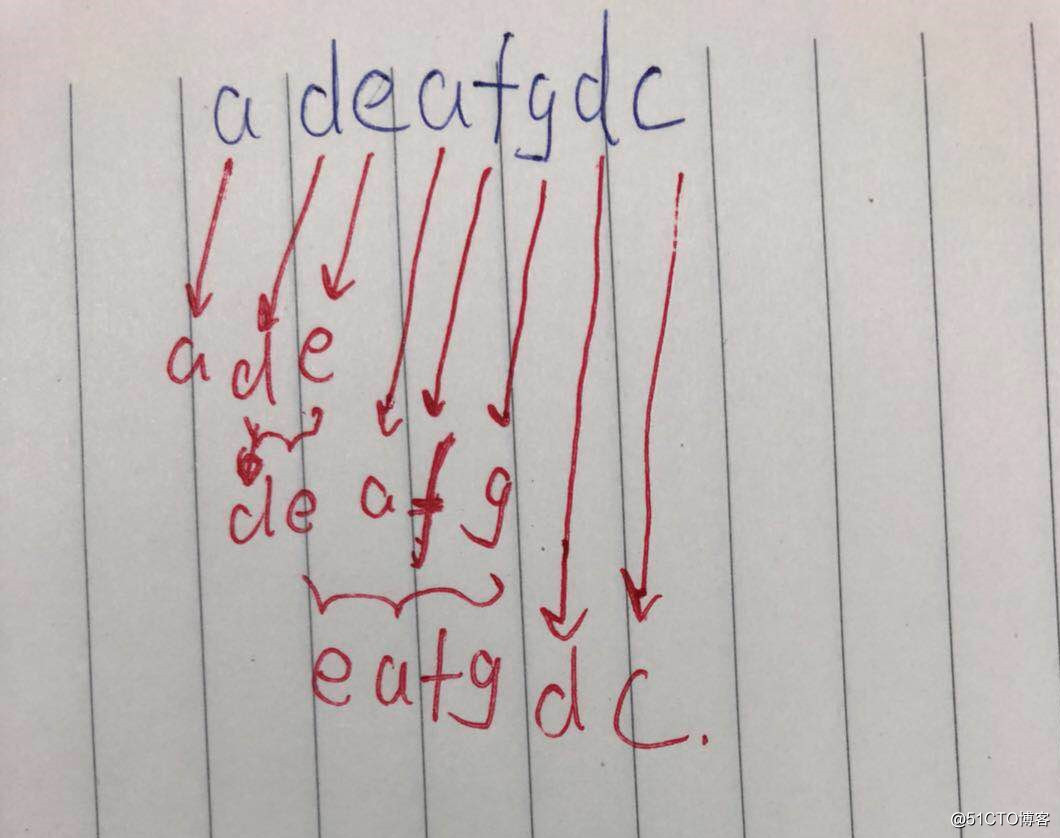 a deafgdc
a de
de a f g
eafg d c.
@51CTO博客